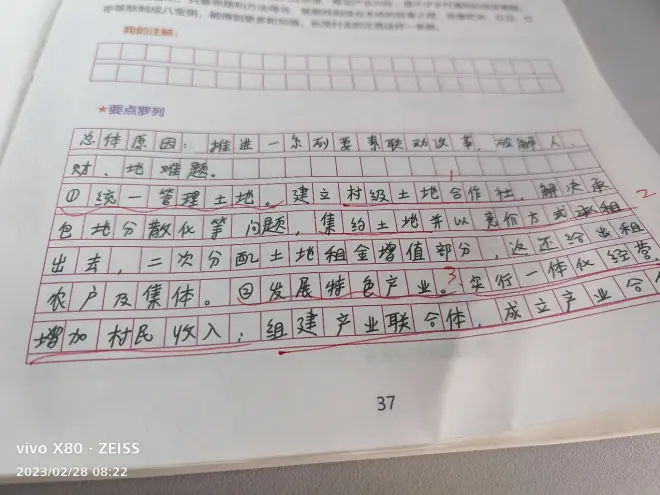 我的注解：
★要点罗列
总体原因：推进一系列要素联动改革，破解人、
财、地难题。
①统一管理土地。建立村级土地合作社，解决承
包地分散化等问题，集约土地并以竞价方式承租
出去，二次分配土地租金增值部分，返还给出租
农户及集体。②发展特色产业。实行一体化经营，
增加村民收入；组建产业联合体，成立产业合
1
2
3
37
vivo X80 · ZEISS
2023/02/28 08:22